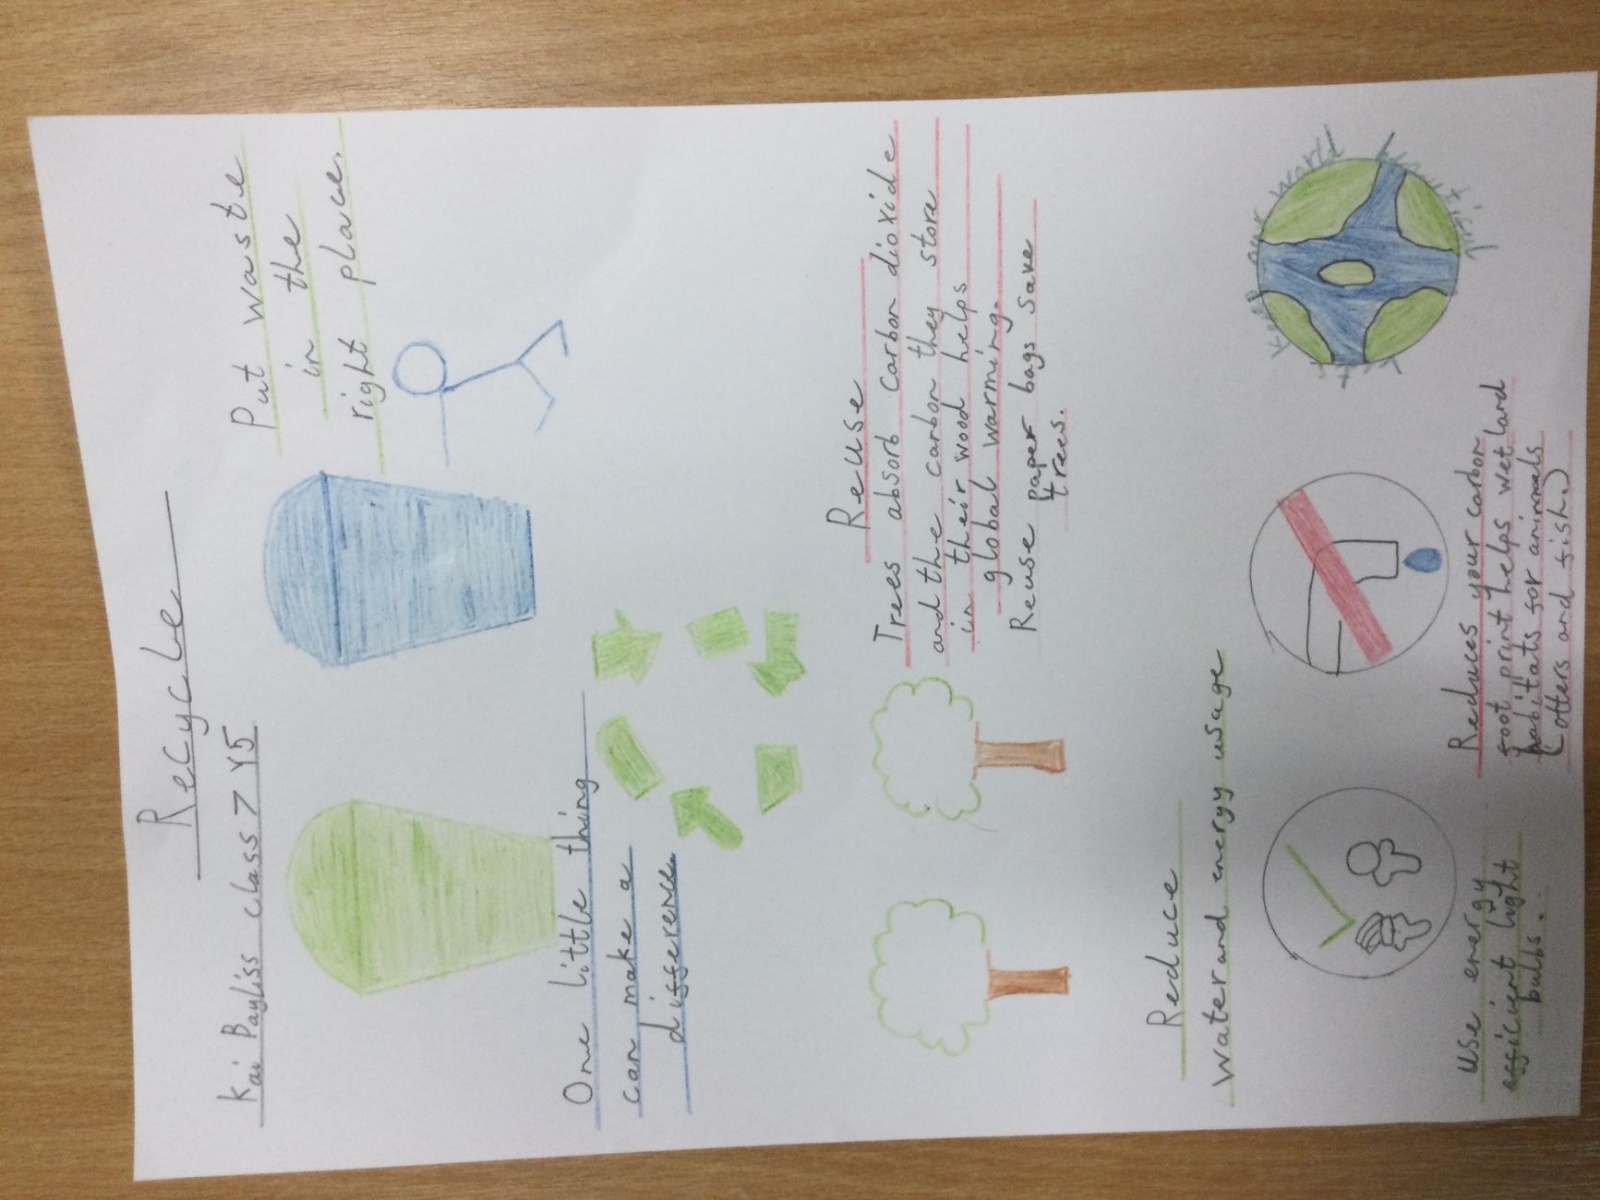 Recycle
Kai Bayliss class 7 Y5
Put waste
in the
right place.
One little thing
can make a
difference
Reuse
Trees absorb carbon dioxide
and the carbon they store
in their wood helps
global warming.
Reuse paper bags save
trees.
Reduce
Water and energy usage
Use energy
efficient light
bulbs.
Reduces your carbon
foot print helps wet land
habitats for animals
(otters and fish)
world